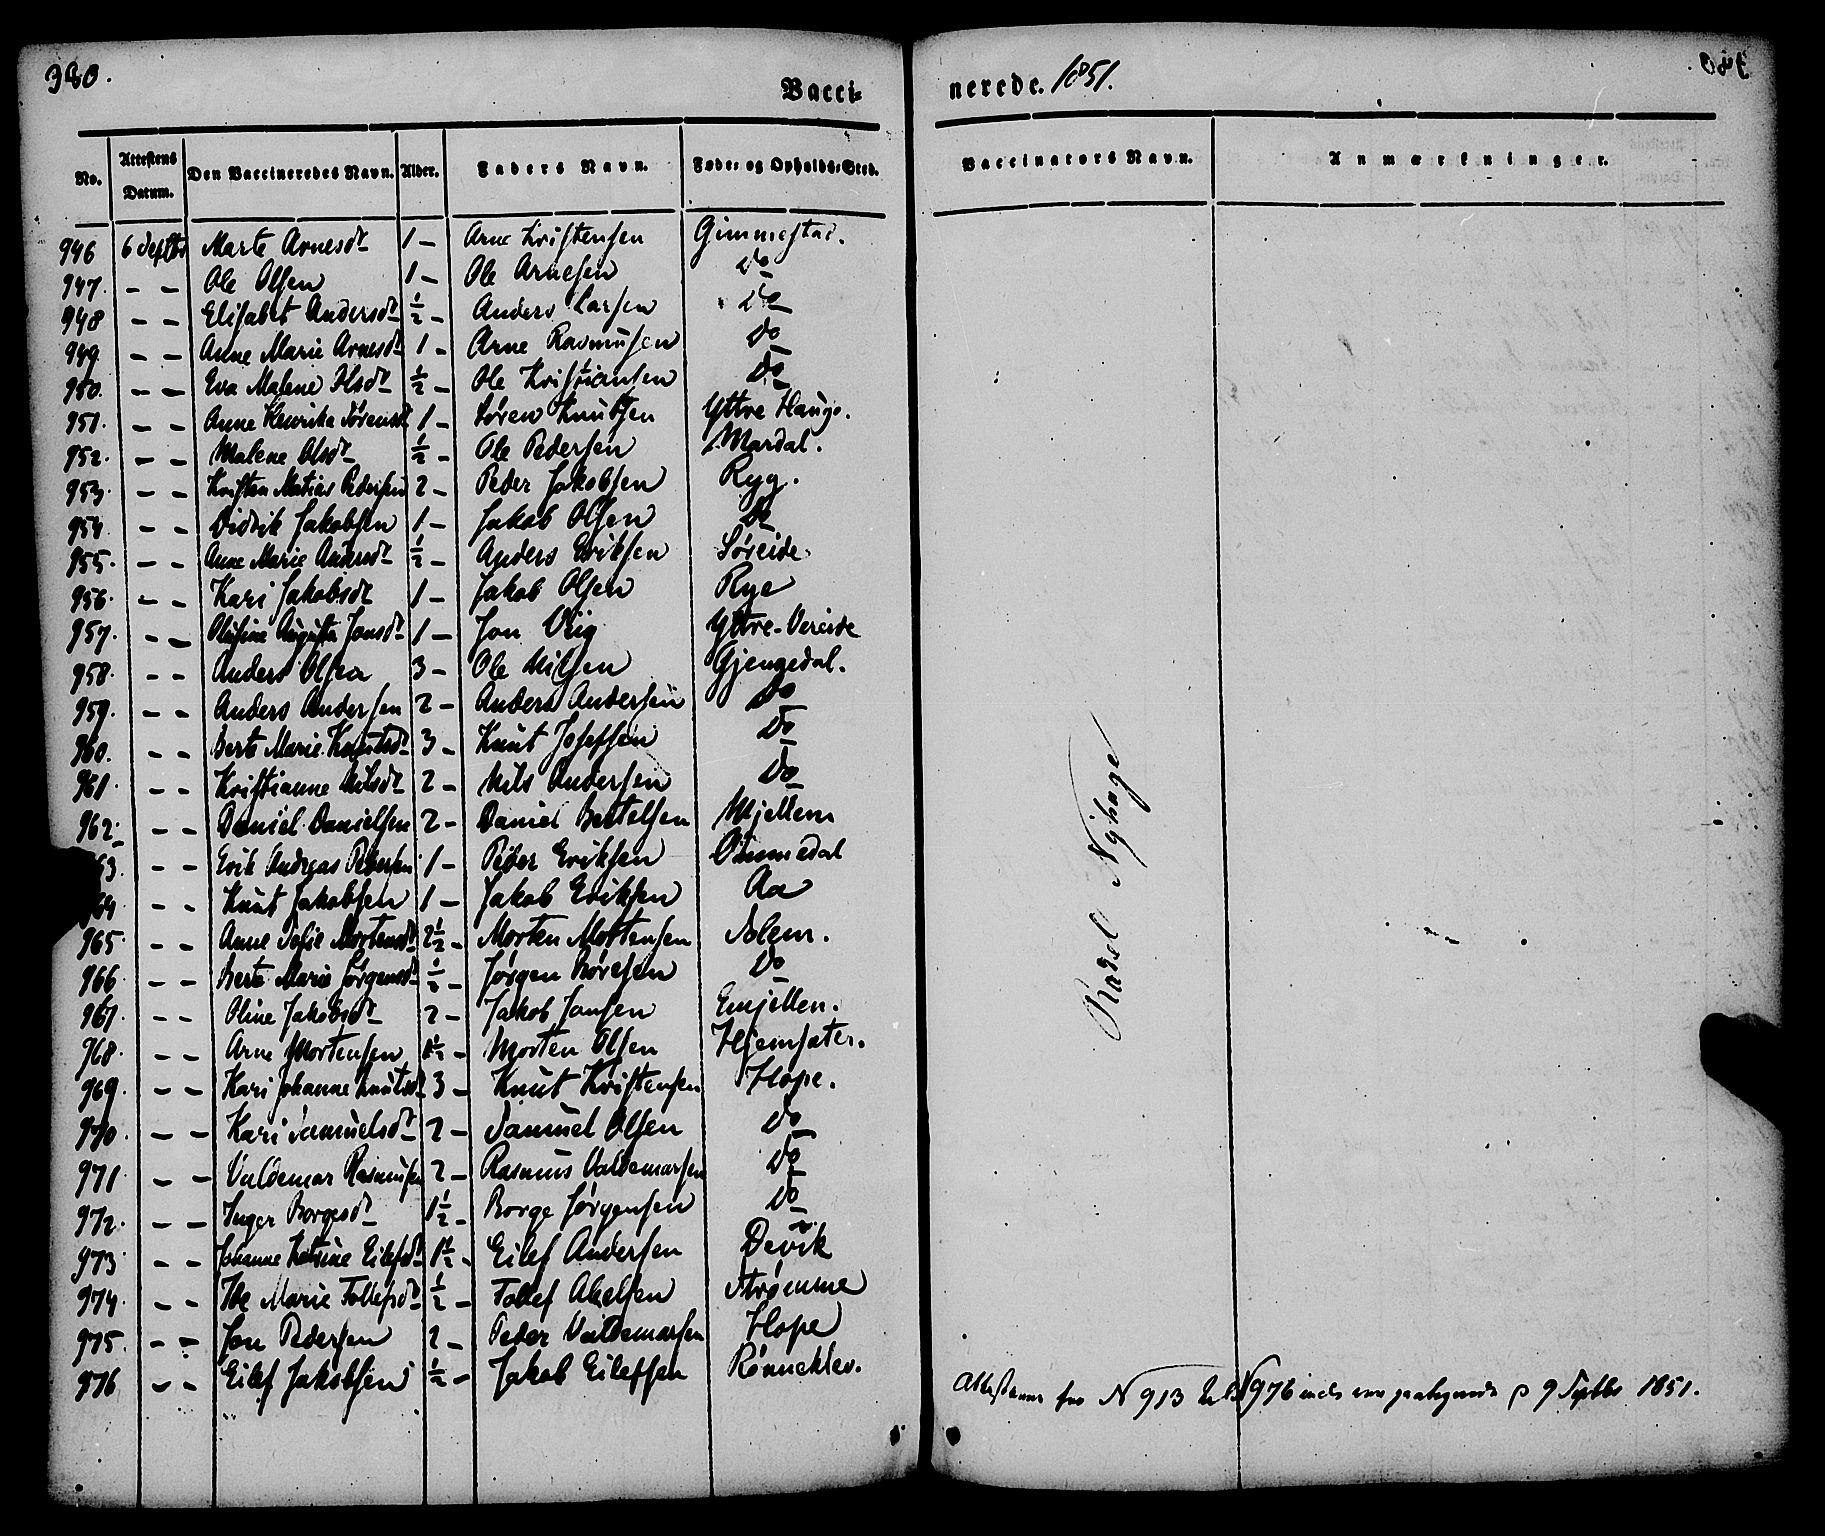 380.
Vaccinerede. 1851.
No. Attestens Datum. Den Vaccineredes Navn. Alder. Faders Navn. Føde- og Opholds-Sted. Vaccinators Navn. Anmærkninger.
946 6 Septbr Marte Arnesdt 1 - Arne Kristensen Gimmestad.
947. - - Ole Olsen 1 - Ole Arnesen Do
948 - - Elisabet Andersdt ½ - Anders Larsen Do
949 - - Anne Marie Arnesdt 1 - Arne Rasmusen Do
950. - - Eva Malene Olsdt ½ - Ole Kristiansen Do
951. - - Anne Henrika Sørensdt 1 - Søren Knutsen Yttre Hauge.
952. - - Malene Olsdt ½ - Ole Pedersen Mardal.
953. - - Kristen Matias Pedersen 2 - Peder Jakobsen Ryg.
954. - - Didrik Jakobsen 1 - Jakob Olsen Do
955. - - Anne Marie Andersdt ½ - Anders Eriksen Søreide.
956. - - Kari Jakobsdt 1 - Jakob Olsen Rye
957. - - Olufine Augusta Jonsdt 1 - Jon Vereide
958. - - Anders Olsen 3 - Ole Nilsen Gjengedal.
959. - - Anders Andersen 2 - Anders Andersen Do
960. - - Berte Marie Knutsdt 3 - Knut Josefsen Do
961. - - Kristianne Nilsdt 2 - Nils Andersen Do
962. - - Daniel Danielsen 2 - Daniel Bertelsen Mjellem
963. - - Erik Andreas Pedersen 1 - Peder Eriksen
964 - - Knut Jakobsen 1 - Jakob Eriksen Aa
965. - - Anne Sofie Mortensdt 2½ - Morten Mortensen
966 - - Berte Marie Jørgensdt ½ - Jørgen Børesen Do
967. - - Oline Jakobsdt 2 - Jakob Jonsen Emjellen.
968. - - Arne Mortensen 1½ - Morten Olsen Hjemsæter.
969. - - Kari Johanne Knutsdt 3 - Knut Kristensen Hope.
970. - - Kari Samuelsdt 2 - Samuel Olsen Do
971 - - Valdemar Rasmusen 2 - Rasmus Valdemarsen Do
972. - - Inger Borgesdt 1½ - Borge Jørgensen Do
973 - - Johanne Katrine Eilefsdt 1½ - Eilef Andersen Devik
974. - - Marie Tollefsdt ½ - Tollef Abelsen Strømme
975. - - Jon Pedersen 2 - Peder Valdemarsen Hope
976 - - Eilef Jakobsen ½ - Jakob Eilefsen Rønneklev.
Radel Nyhage
Attesterne fra N 913 til N 976 incls ere paategnede d 9 Septbr 1851.